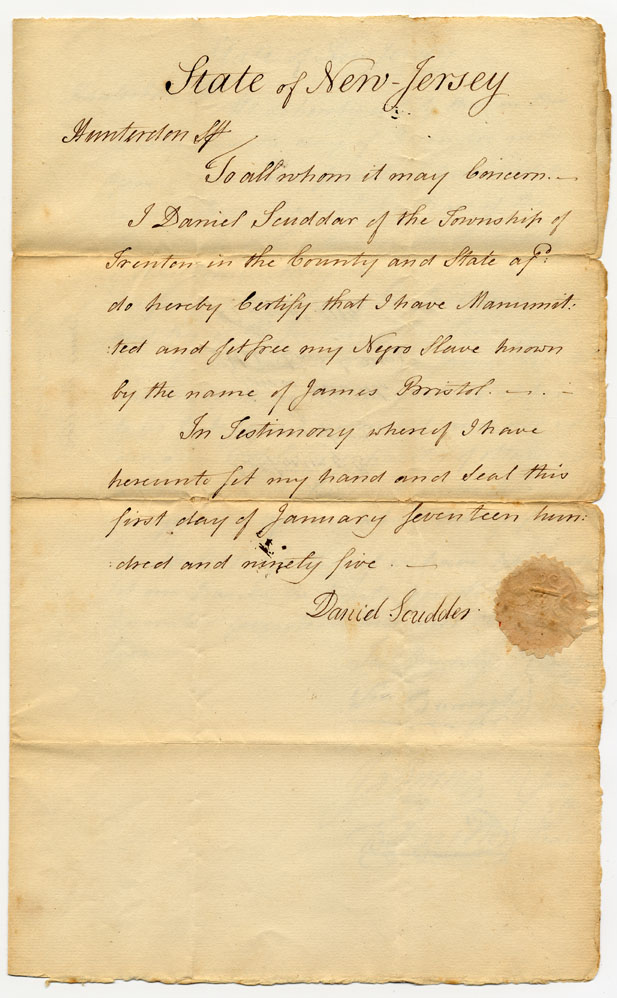 State of New-Jersey
Hunterdon Ss
To all whom it may Concern. —
I Daniel Scuddar of the Township of
Trenton in the County and State afd.
do hereby Certify that I have Manumit:
:ted and set free my Negro Slave known
by the name of James Bristol. — . —
In Testimony whereof I have
hereunto set my hand and Seal this
first day of January seventeen hun:
:dred and ninety five. —
Daniel Scudder.